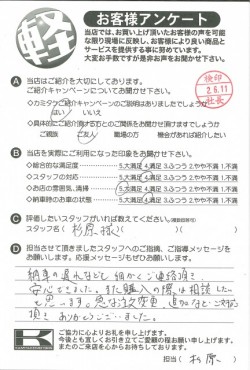 軽
お客様アンケート
当店では、お買い上げ頂いたお客様の声を可能
な限り現場に反映し、お客様により良い商品と
サービスを提供する事に努めています。
大変お手数ですが是非お声をお聞かせ下さい。
検印
2.6.11
社長
A 当店はご紹介を大切にしております。
ご紹介キャンペーンについてお聞かせ下さい。
◇カミタウご紹介キャンペーンのご説明はありましたでしょうか
はい いいえ
◇具体的にご紹介頂ける方とのご関係をお聞かせ頂けますでしょうか
ご親族 ご友人 職場の方 機会があれば紹介したい
B 当店を実際にご利用になった印象をお聞かせ下さい。
◇総合的な満足度 5.大満足 4.満足 3.ふつう 2.やや不満 1.不満
◇スタッフの対応 5.大満足 4.満足 3.ふつう 2.やや不満 1.不満
◇お店の雰囲気、清掃 5.大満足 4.満足 3.ふつう 2.やや不満 1.不満
◇納車時のお車の状態 5.大満足 4.満足 3.ふつう 2.やや不満 1.不満
C 評価したいスタッフがいれば教えてください。
スタッフ名( 杉原様 )( )
D 担当させて頂きましたスタッフへのご指摘、ご要望を
お願いします。応援メッセージもぜひお願いします。
納車の遅れなど細かくご連絡頂き
安心できました。また購入の際は相談したい
と思います。急な注文変更、追加などご対応
頂きありがとうございました。
K
ご協力に心よりお礼を申し上げます。
今後とも宜しくお引き立てご愛顧の程お願い申し上げます。
またのご来店を心からお待ちしております。
担当( 杉原 )